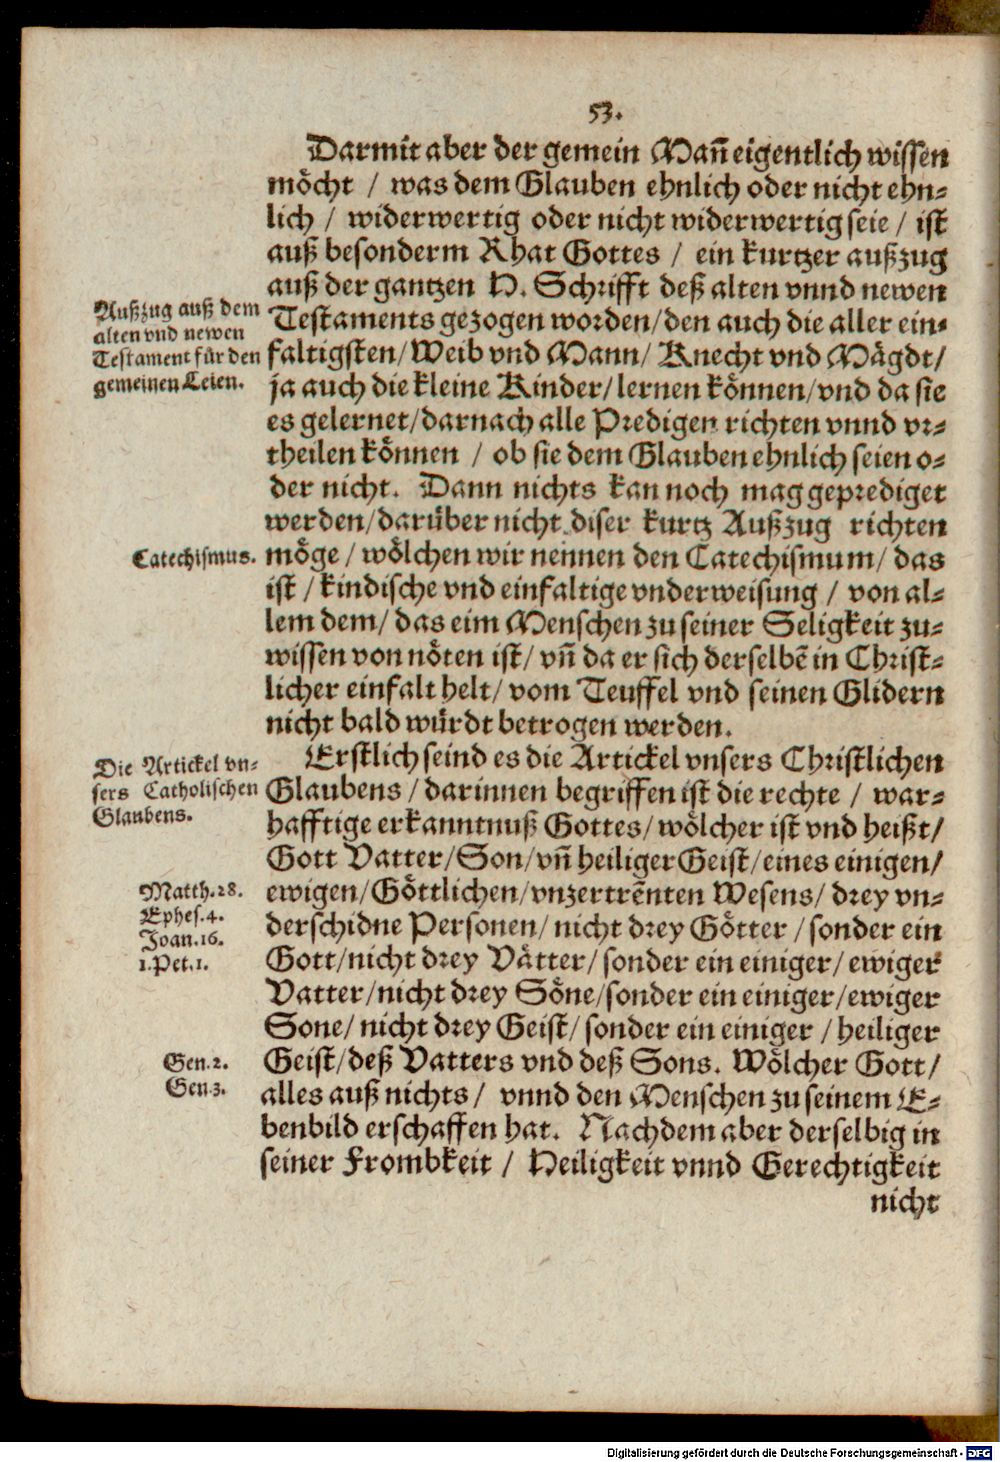 53.
Darmit aber der gemein Mañ eigentlich wissen
möcht / was dem Glauben ehnlich oder nicht ehn-
lich / widerwertig oder nicht widerwertig seie / ist
auß besonderm Rhat Gottes / ein kurtzer außzug
auß der gantzen H. Schrifft deß alten vnnd newen
Außzug auß dem
alten vnd newen
Testament für den
gemeinen Leien.
Testaments gezogen worden/den auch die aller ein-
faltigsten/Weib vnd Mann/ Knecht vnd Mägdt/
ja auch die kleine Kinder/lernen können/vnd da sie
es gelernet/darnach alle Predigen richten vnnd vr-
theilen können / ob sie dem Glauben ehnlich seien o-
der nicht. Dann nichts kan noch mag geprediget
werden/darüber nicht diser kurtz Außzug richten
Catechismus.
möge / wölchen wir nennen den Catechismum/ das
ist / kindische vnd einfaltige vnderweisung / von al-
lem dem/ das eim Menschen zu seiner Seligkeit zu-
wissen von nöten ist/ vñ da er sich derselbẽ in Christ-
licher einfalt helt/ vom Teuffel vnd seinen Glidern
nicht bald würdt betrogen werden.
Die Artickel vn-
sers Catholischen
Glaubens.
Erstlich seind es die Artickel vnsers Christlichen
Glaubens / darinnen begriffen ist die rechte / war-
hafftige erkanntnuß Gottes/ wölcher ist vnd heißt/
Gott Vatter/Son/vñ heiliger Geist/eines einigen/
Matth.28.
Ephes.4.
Joan.16.
1.Pet.1.
ewigen/Göttlichen/vnzertrẽnten Wesens/ drey vn-
derschidne Personen/ nicht drey Götter / sonder ein
Gott/nicht drey Vätter/ sonder ein einiger/ ewiger
Vatter/nicht drey Söne/sonder ein einiger/ewiger
Sone/ nicht drey Geist/ sonder ein einiger / heiliger
Gen.2.
Gen.3.
Geist/deß Vatters vnd deß Sons. Wölcher Gott/
alles auß nichts / vnnd den Menschen zu seinem E-
benbild erschaffen hat. Nachdem aber derselbig in
seiner Frombkeit / Heiligkeit vnnd Gerechtigkeit
nicht
Digitalisierung gefördert durch die Deutsche Forschungsgemeinschaft - DFG